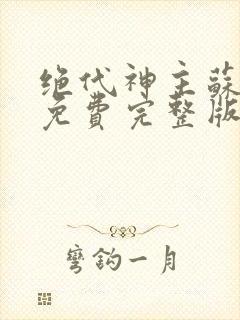 绝代神主蘇
免費完整版
彎鈎一月